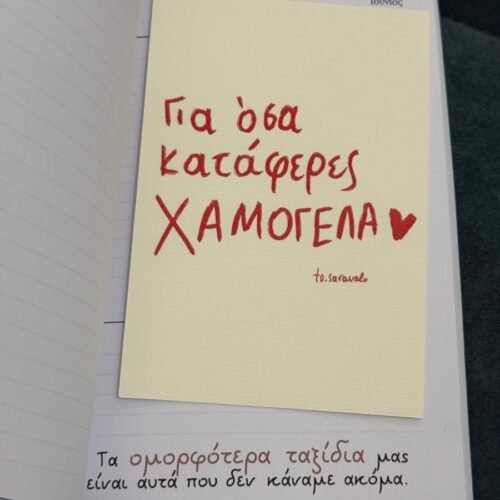 Ιούνιος
Για όσα
κατάφερες
ΧΑΜΟΓΕΛΑ
to.saravalo
Τα ομορφότερα ταξίδια μας
είναι αυτά που δεν κάναμε ακόμα.